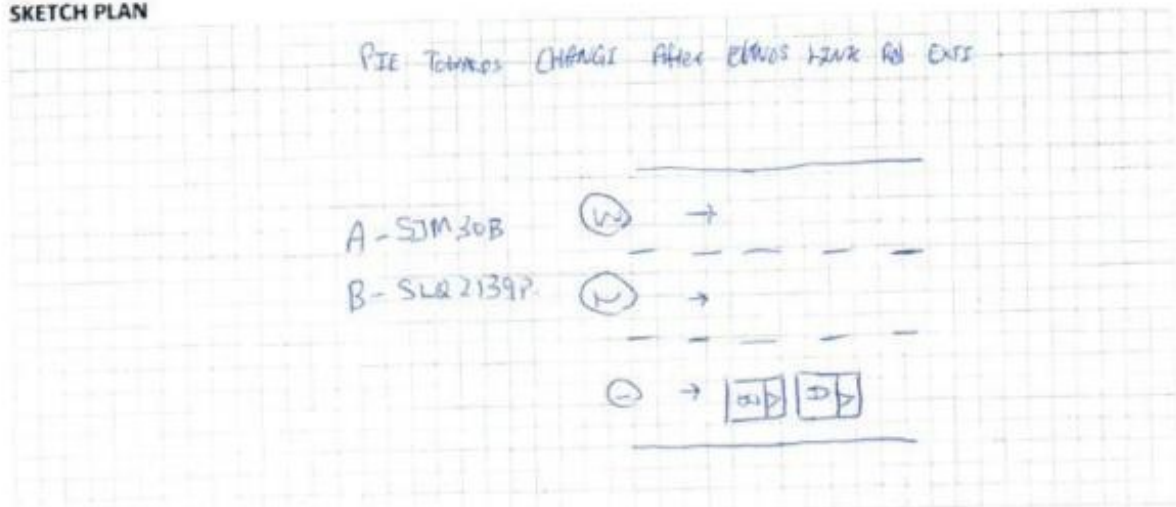 SKETCH PLAN
PIE Towards CHANGI After EUNOS LINK Rd EXIT
A - SJM30B
3
B - SLQ2139P
2
1
B A